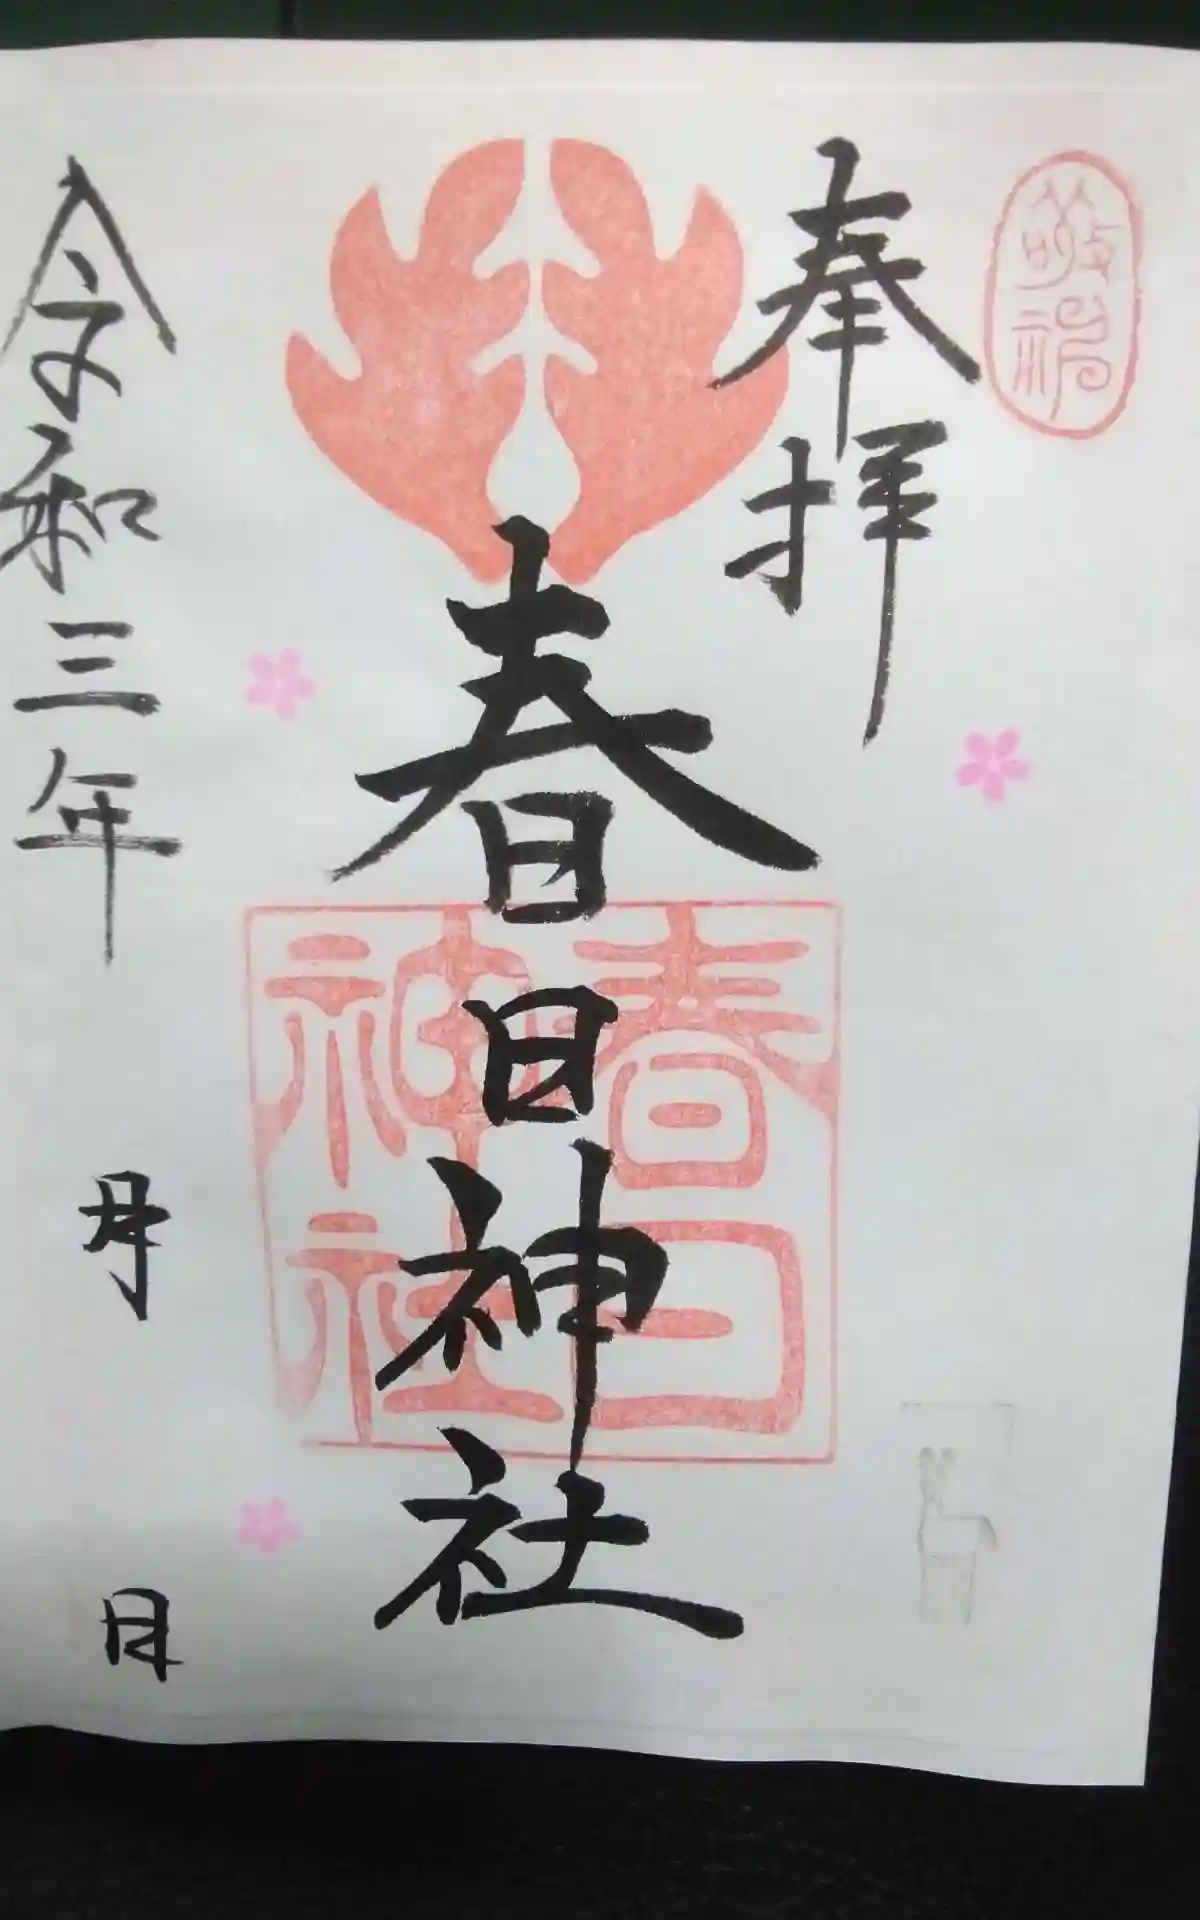 敬神
奉拝
春日神社
春日
神社
令和三年 月 日